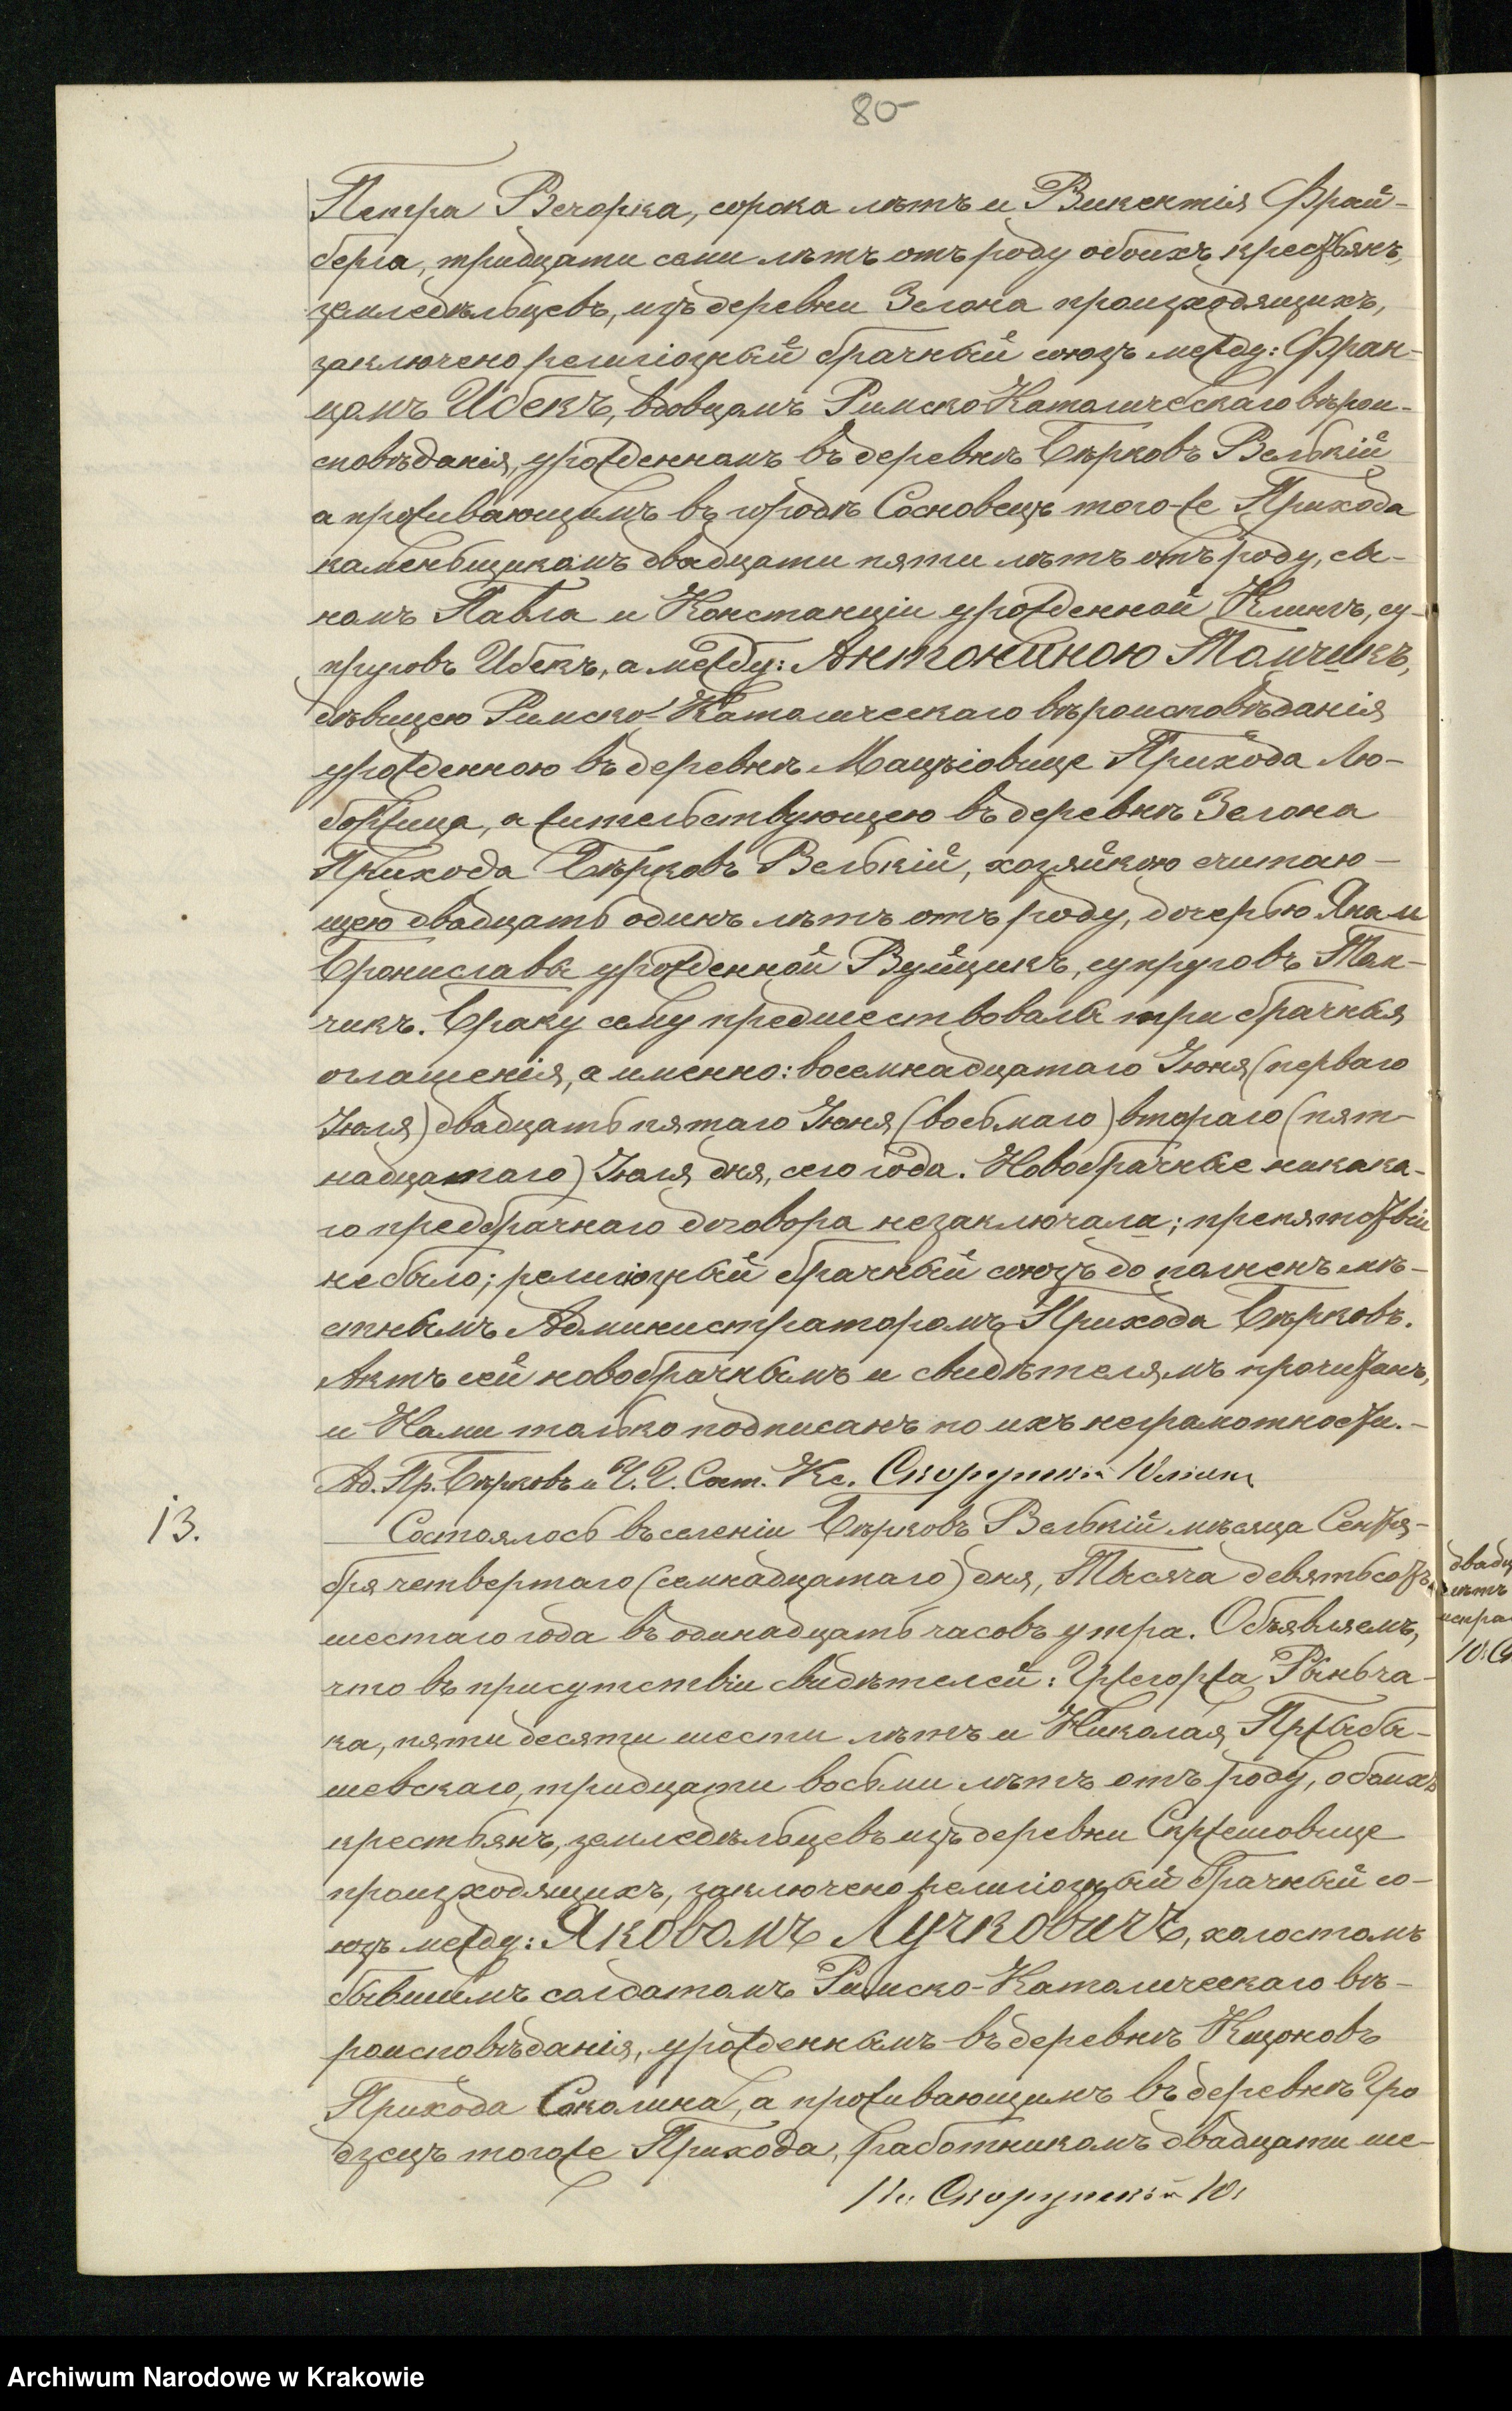 80
Петра Вечорка, сорока лѣтъ и Викентія Фрай-
берга, тридцати семи лѣтъ отъ роду обоихъ крестьянъ,
земледѣльцевъ, изъ деревни Зелона происходящихъ,
заключено религіозный брачный союзъ между: Фран-
цомъ Ибекъ, вдовцомъ Римско Католическаго вѣрои-
сповѣданія, урожденномъ въ деревнѣ Бѣрковъ Велькій
а проживающимъ въ городѣ Сосновецъ того-же Прихода
каменьщикомъ двадцати пяти лѣтъ отъ роду, сы-
номъ Павла и Констанціи урожденной Климъ, су-
пруговъ Ибекъ, а между: Антониною Томчикъ,
дѣвицею Римско-Католическаго вѣроисповѣданія
урожденною въ деревнѣ Мацѣіовице Прихода Лю-
боржица, а жительствующею въ деревнѣ Зелона
Прихода Бѣрковъ Велькій, хозяйкою считаю-
щею двадцать одинъ лѣтъ отъ роду, дочерью Яна и
Брониславы урожденной Вуйцикъ, супруговъ Том-
чикъ. Браку сему предшествовали три брачныя
оглашенія, а именно: восемнадцатаго Іюня (перваго
Іюля) двадцать пятаго Іюня (восьмаго) втораго (пят-
надцатаго) Іюля дня, сего года. Новобрачные никака-
го предбрачнаго договора незаключала; препятствій
небыло; религіозный брачный союзъ до полненъ мѣ-
стнымъ Администраторомъ Прихода Бѣрковъ.
Актъ сей новобрачнымъ и свидѣтелямъ прочитанъ,
и Нами только подписанъ по ихъ неграмотности.-
Ад. Пр. Бѣрковъ и Ч. Г. Сост. Кс. Скорупскій Юліанъ
13.
Состоялось въ селеніи Бѣрковъ Велькій мѣсяца Сентя-
бря четвертаго (семнадцатаго) дня, Тысяча девятьсотъ
шестаго года въ одинадцать часовъ утра. Объявляемъ,
что въ присутствіи свидѣтелей: Гржегоржа Рыньча-
ка, пяти десяти шести лѣтъ и Николая Пржыбы-
шевскаго, тридцати восьми лѣтъ отъ роду, обоихъ
крестьянъ, земледѣльцевъ изъ деревни Скржешовице
происходящихъ, заключено религіозный брачный со-
юзъ между: Яковомъ Лучковичъ, холостомъ
бывшимъ солдатомъ Римско-Католическаго вѣ-
роисповѣданія, урожденнымъ въ деревнѣ Кщоновъ
Прихода Соколина, а проживающимъ въ деревнѣ Гро
дзецъ тогоже Прихода, работникомъ двадцати ше-
Кс. Скорупскій Ю.
Archiwum Narodowe w Krakowie